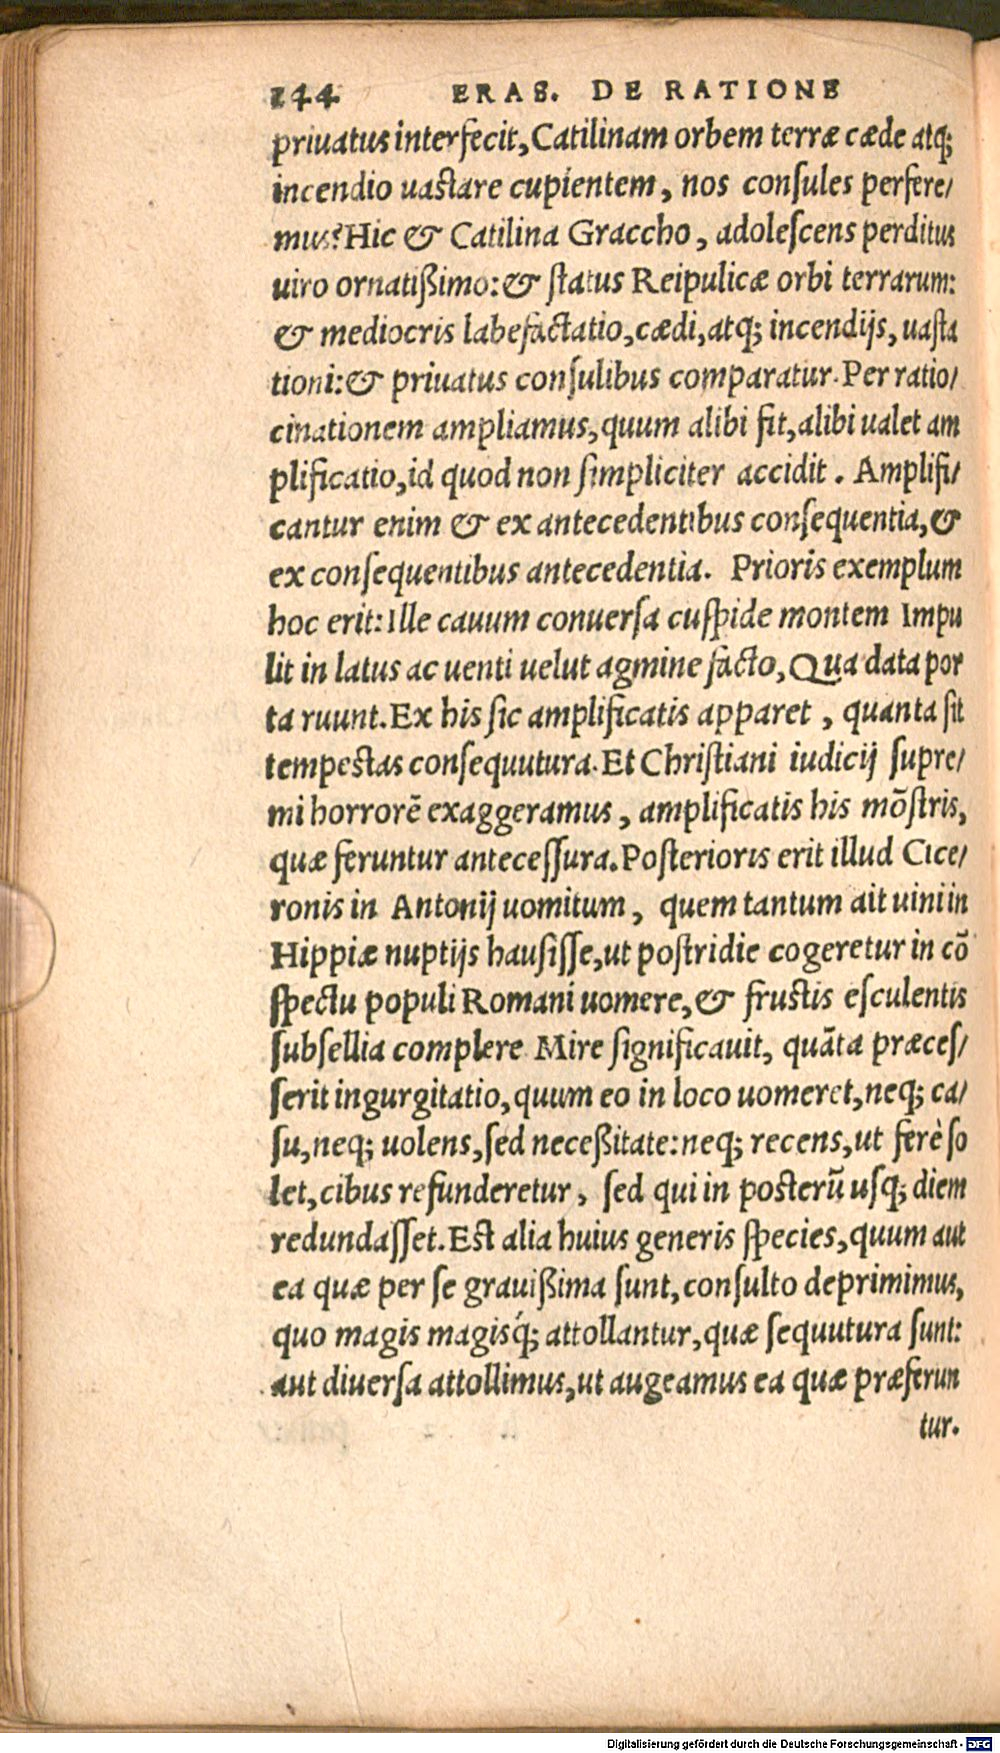 144 ERAS. DE RATIONE
priuatus interfecit, Catilinam orbem terræ cæde atq;
incendio uastare cupientem, nos consules perfere/
mus? Hic & Catilina Graccho, adolescens perditus
uiro ornatißimo: & status Reipulicæ orbi terrarum:
& mediocris labefactatio, cædi, atq; incendijs, uasta
tioni: & priuatus consulibus comparatur. Per ratio/
cinationem ampliamus, quum alibi fit, alibi ualet am
plificatio, id quod non simpliciter accidit. Amplifi/
cantur enim & ex antecedentibus consequentia, &
ex consequentibus antecedentia. Prioris exemplum
hoc erit: Ille cauum conuersa cuspide montem Impu
lit in latus ac uenti uelut agmine facto, Qua data por
ta ruunt. Ex his sic amplificatis apparet, quanta sit
tempestas consequutura. Et Christiani iudicij supre/
mi horrorē exaggeramus, amplificatis his mōstris,
quæ feruntur antecessura. Posterioris erit illud Cice/
ronis in Antonij uomitum, quem tantum ait uini in
Hippiæ nuptijs hausisse, ut postridie cogeretur in cō
spectu populi Romani uomere, & frustis esculentis
subsellia complere Mire significauit, quāta præces/
serit ingurgitatio, quum eo in loco uomeret, neq; ca/
su, neq; uolens, sed neceßitate: neq; recens, ut ferè so
let, cibus refunderetur, sed qui in posterū usq; diem
redundasset. Est alia huius generis species, quum aut
ea quæ per se grauißima sunt, consulto deprimimus,
quo magis magisq́; attollantur, quæ sequutura sunt:
aut diuersa attollimus, ut augeamus ea quæ præferun
tur.
Digitalisierung gefördert durch die Deutsche Forschungsgemeinschaft - DFG